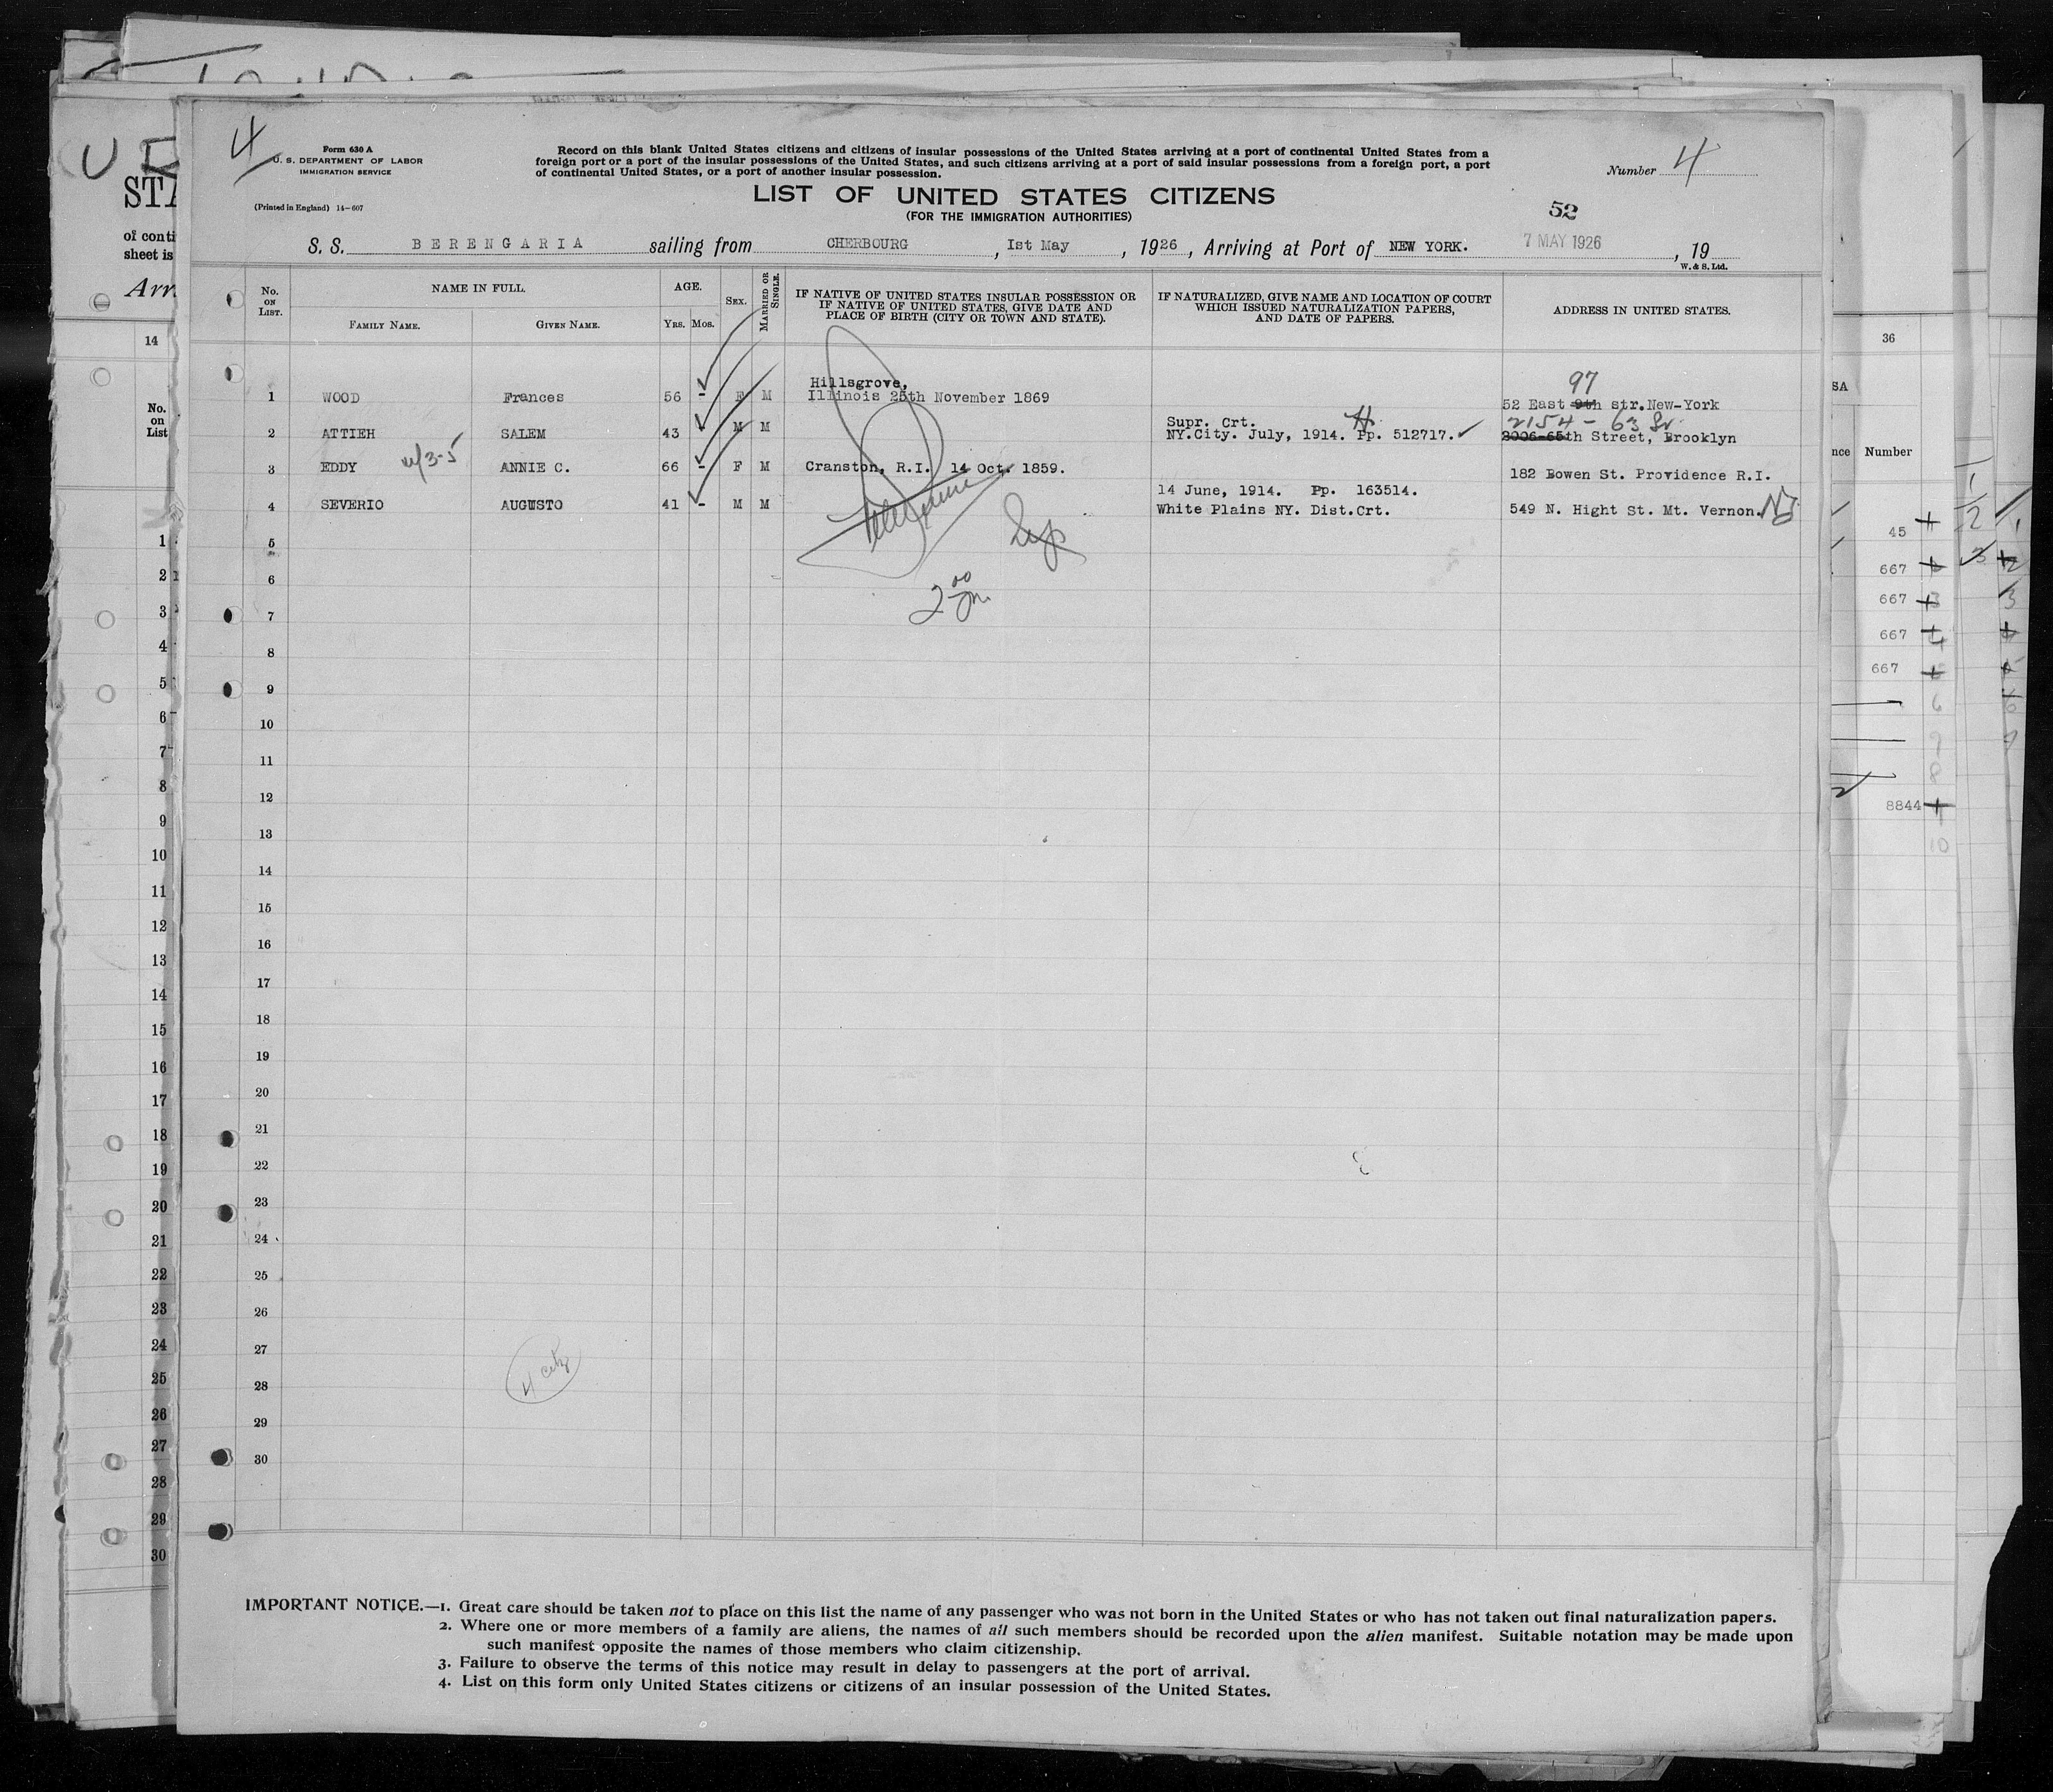 4
Form 630 A
U. S. DEPARTMENT OF LABOR
IMMIGRATION SERVICE
(Printed in England) 14-607
Record on this blank United States citizens and citizens of insular possessions of the United States arriving at a port of continental United States from a
foreign port or a port of the insular possessions of the United States, and such citizens arriving at a port of said insular possessions from a foreign port, a port
of continental United States, or a port of another insular possession.
Number 4
LIST OF UNITED STATES CITIZENS
(FOR THE IMMIGRATION AUTHORITIES)
52
S. S. BERENGARIA sailing from CHERBOURG, 1st May, 1926, Arriving at Port of NEW YORK. 7 MAY 1926, 19
W. & S. Ltd.
No. ON LIST.
NAME IN FULL.
FAMILY NAME.
GIVEN NAME.
AGE.
YRS. MOS.
SEX.
MARRIED OR SINGLE.
IF NATIVE OF UNITED STATES INSULAR POSSESSION OR
IF NATIVE OF UNITED STATES, GIVE DATE AND
PLACE OF BIRTH (CITY OR TOWN AND STATE).
IF NATURALIZED, GIVE NAME AND LOCATION OF COURT
WHICH ISSUED NATURALIZATION PAPERS,
AND DATE OF PAPERS.
ADDRESS IN UNITED STATES.
Hillsgrove, 97
1 WOOD Frances 56 - F M Illinois 25th November 1869 52 East 9th str. New-York
Supr. Crt. 2154 - 63
2 ATTIEH SALEM 43 M M NY.City. July, 1914. Pp. 512717. 2006-65th Street, Brooklyn
3 EDDY w/3-5 ANNIE C. 66 - F M Cranston, R.I. 14 Oct. 1859. 182 Bowen St. Providence R.I.
14 June, 1914. Pp. 163514.
4 SEVERIO AUGUSTO 41 - M M White Plains NY. Dist.Crt. 549 N. Hight St. Mt. Vernon. NY
5
6
2 00
7
8
9
10
11
12
13
14
15
16
17
18
19
20
21
22
23
24
25
26
27
4 citz
28
29
30
IMPORTANT NOTICE.—1. Great care should be taken not to place on this list the name of any passenger who was not born in the United States or who has not taken out final naturalization papers.
2. Where one or more members of a family are aliens, the names of all such members should be recorded upon the alien manifest. Suitable notation may be made upon
such manifest opposite the names of those members who claim citizenship.
3. Failure to observe the terms of this notice may result in delay to passengers at the port of arrival.
4. List on this form only United States citizens or citizens of an insular possession of the United States.
STA
of conti
sheet is
Arr
14
No.
on
List
1
2
3
4
5
6
7
8
9
10
11
12
13
14
15
16
17
18
19
20
21
22
23
24
25
26
27
28
29
30
36
SA
nce Number
45
667
667
667
667
8844